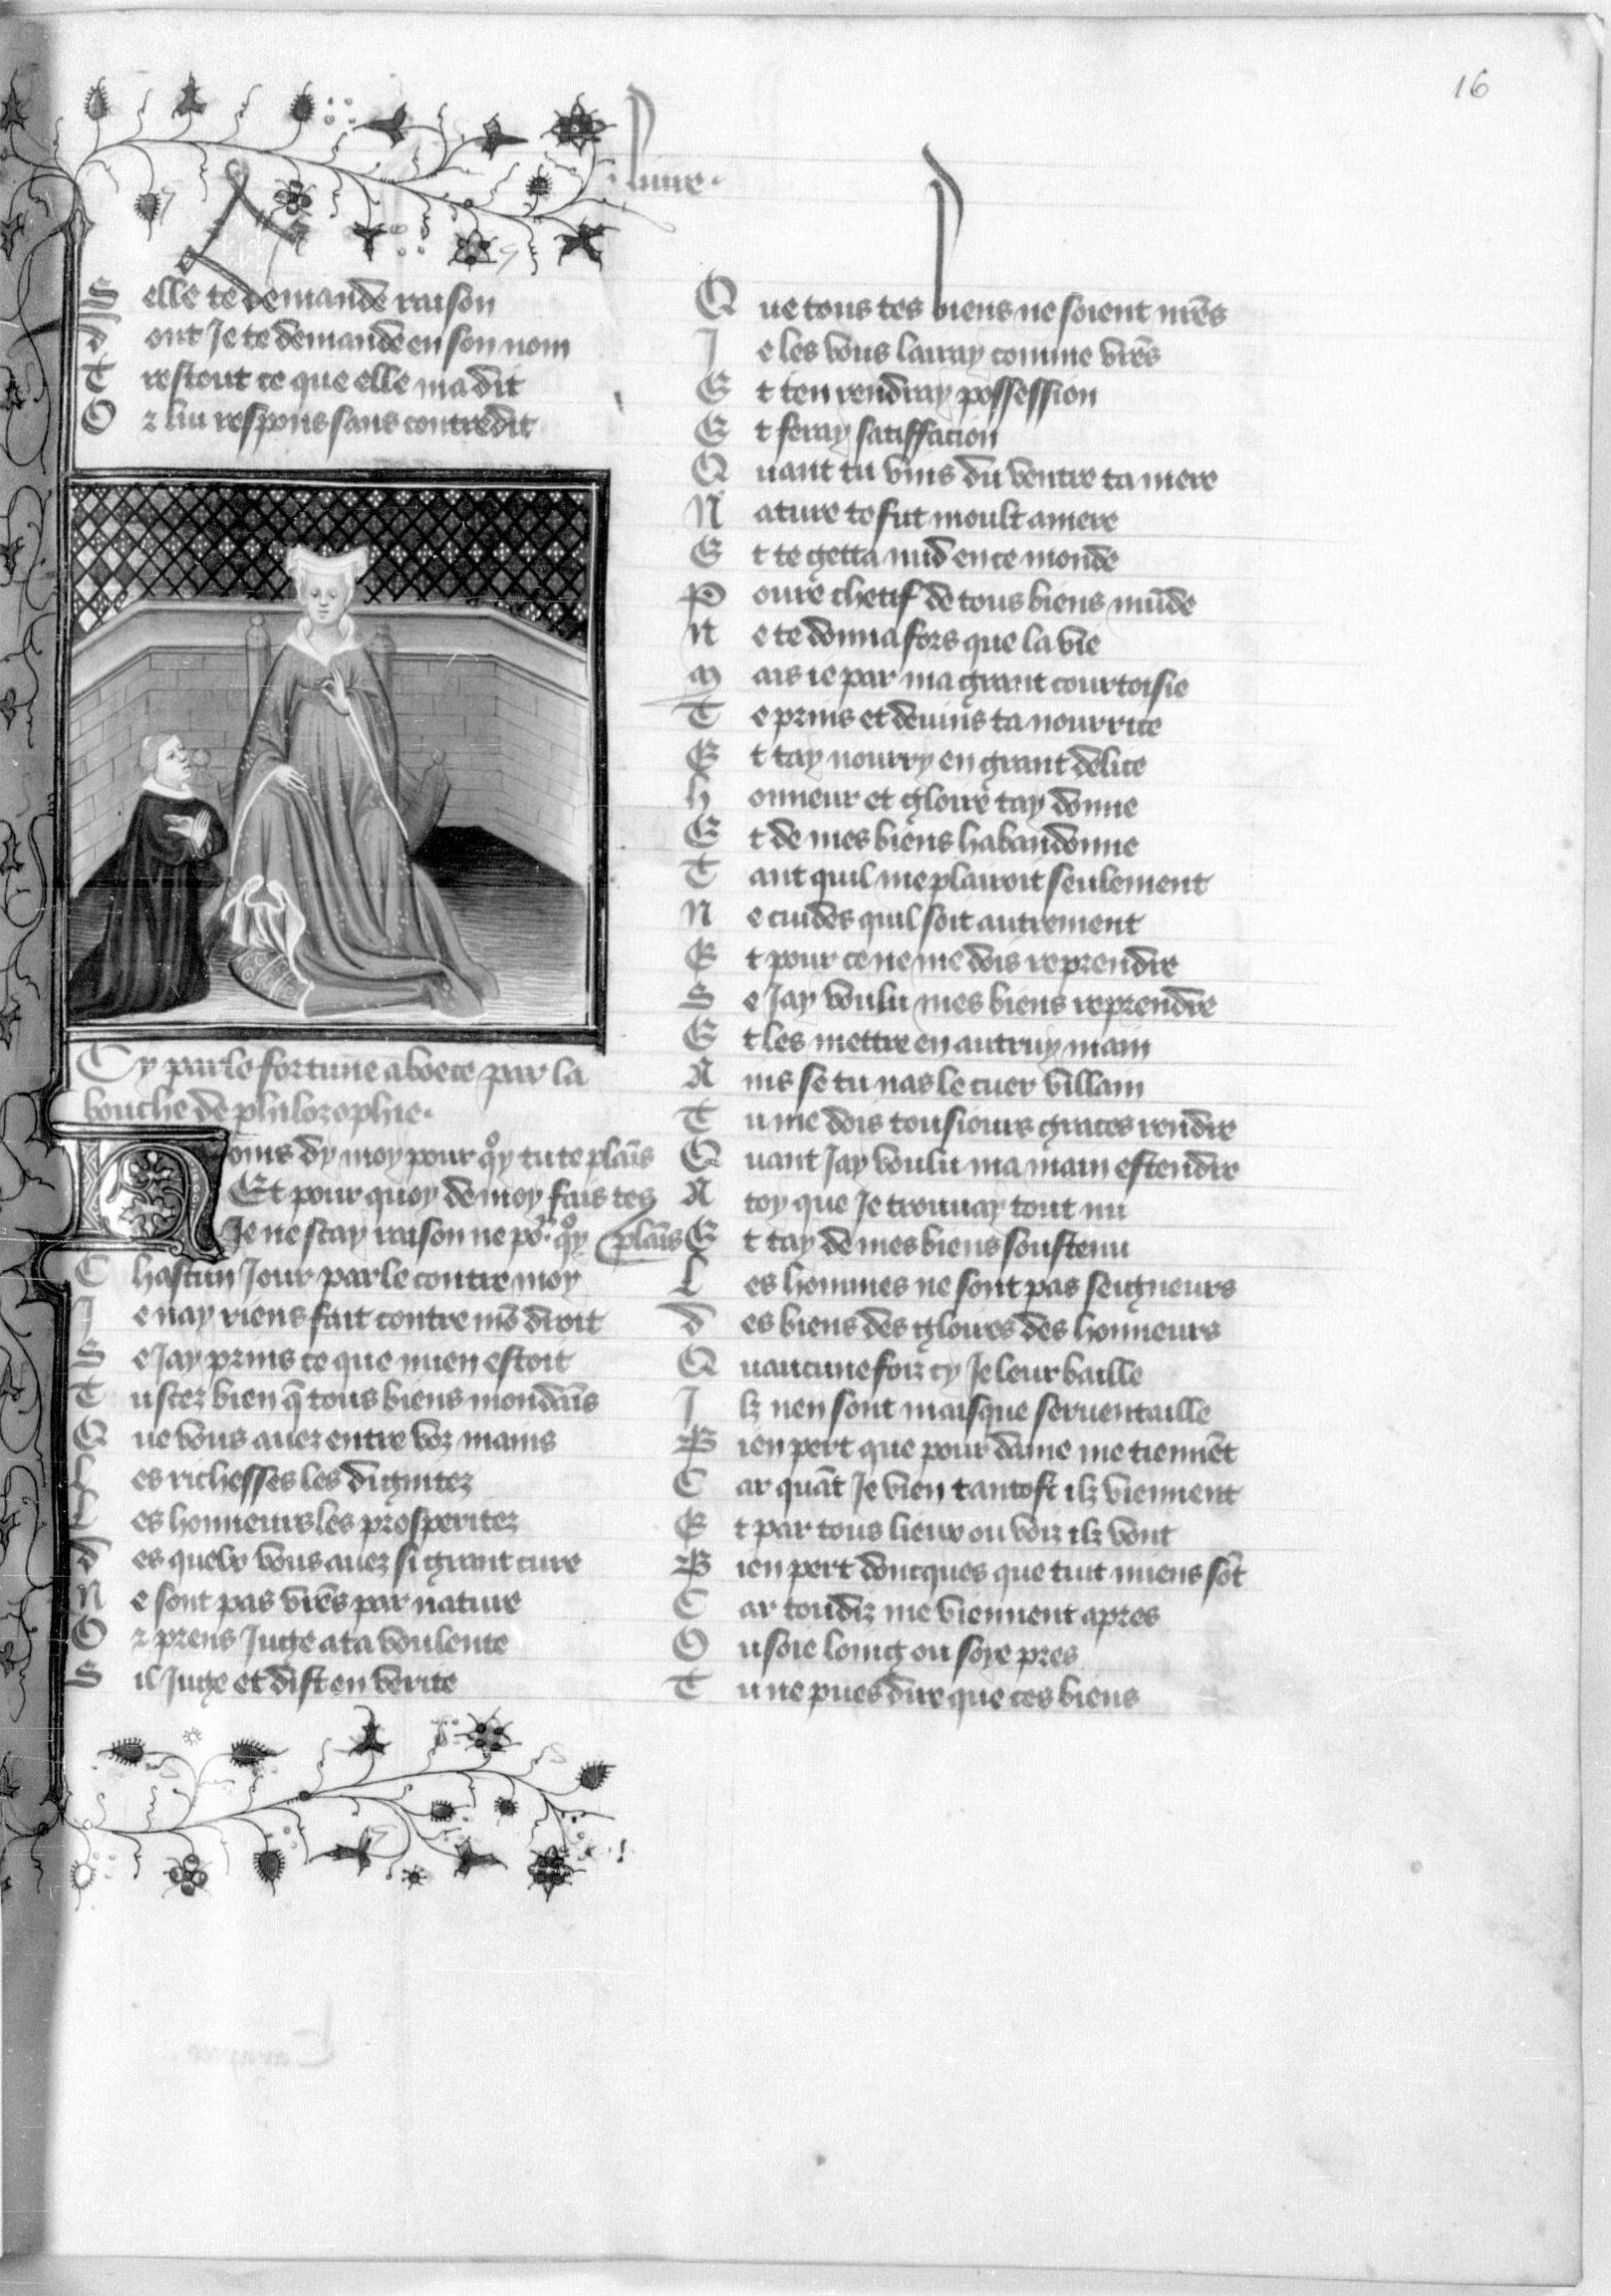 16
Liure.
S elle te demande raison
d ont Je te demande en son nom
T restout ce que elle ma dit
O r luy respons sans contredit
Cy parle fortune a boece par la
bouche de philozophie.
oms dy moy pour qoy tu te plais
Et pour quoy de moy fais tes
Je ne scay raison ne po. qoy plais
C hascun Jour parle contre moy
J e nay riens fait contre mō droit
S e Jay prins ce que mien estoit
T u scez bien q̄ tous biens mondais
Q ue vous auez entre voz mains
L es richesses les dignitez
L es honneurs les prosperitez
d es quelx vous auez si grant cure
N e sont pas vr̄es par nature
O r prens Juge a ta voulente
S il Juge et dist en verite
Q ue tous tes biens ne soient nr̄es
J e les vous lairay comme vr̄es
E t ten rendray possession
E t feray satiffacion
Q uant tu vins du ventre ta mere
N ature te fut moult amere
E t te getta nud en ce monde
P oure chetif de tous biens mūde
N e te donna fors que la vie
M ais ie par ma grant courtoisie
T e prins et deuins ta nourrice
E t tay nourry en grant delice
h onneur et gloire tay donne
E t de mes biens habandonne
T ant quil me plairoit seulement
N e cuides quil soit autrement
E t pour ce ne me dois reprendre
S e Jay voulu mes biens reprendre
E t les mettre en autruy main
A ins se tu nas le cuer villain
T u me dois tousiours graces rendre
Q uant Jay voulu ma main estendre
A toy que Je trouuay tout nu
E t tay de mes biens soustenu
L es hommes ne sont pas seigneurs
d es biens des gloires des honneurs
Q uaucune foiz cy Je leur baille
J lz nen sont mais que seruentaille
B ien pert que pour dame me tiennēt
C ar quāt Je vien tantost ilz viennent
E t par tous lieux ou voiz ilz vont
B ien pert doncques que tuit miens sōt
C ar toudiz me viennent apres
O u soie loing ou soye pres
T u ne pues dire que ces biens